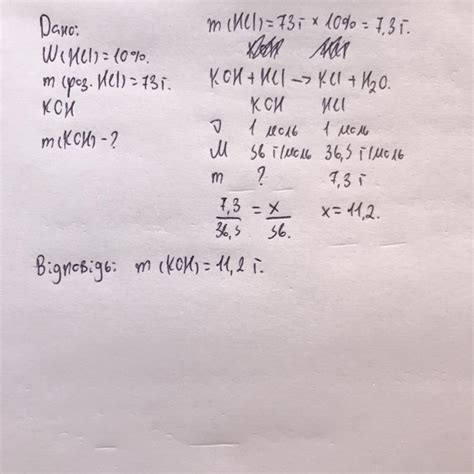 Дано:
W(HCl)=10%.
m(роз. HCl)=73г.
KOH
m(KOH)-?
m(HCl)=73г × 10% = 7,3г.
KOH + HCl → KCl + H₂O.
KOH HCl
ν 1 моль 1 моль
M 56 г/моль 36,5 г/моль
m ? 7,3 г
7,3/36,5 = x/56. x=11,2.
Відповідь: m(KOH)=11,2 г.